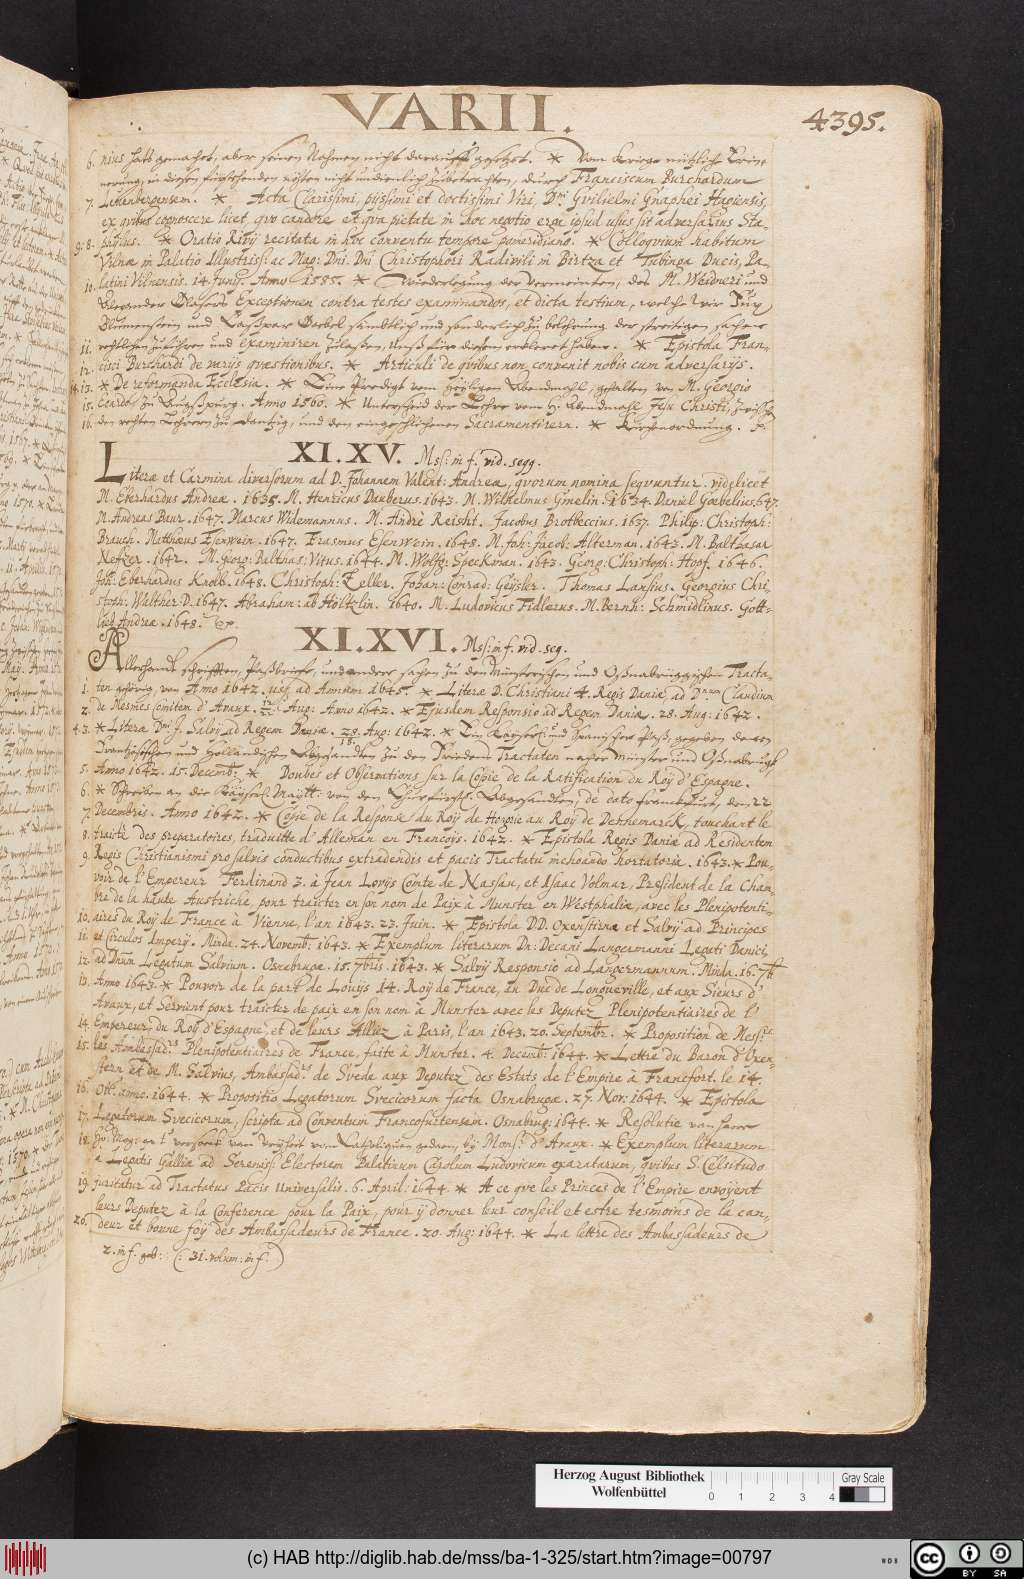 VARII.
4395.
6. nius hatt gemachet, aber seinen Nahmen nicht darauff gesetzet. * Vom Kriege nützliche Erin
nerung, in diesen fürstehenden nöhten nicht undienlich zubetrachten, durch Franciscum Burchardum
7. Leltenbergensem. * Acta Clarissimi, pijssimi et doctissimi Viri, Dni Gvilielmi Gnaphei Hagiensis,
ex qvibus cognoscere licet, qvo candore et qva pietate in hoc negotio erga ipsud usus sit adversarius Sta-
9. 8. philus. * Oratio Rivij recitata in hoc conventu tempore pomeridiano. * Colloqvium habitum
Vilnæ in Palatio Illustriss: ac Mag: Dni. Dni Christophori Radivili in Birtza et Tubinga Ducis, Pa-
10. latini Vilnensis. 14. Junij. Anno 1585. * Wiederlegung der vermeinten, des M. Weidneri und
Alexander Glasers Exceptionen contra testes examinandos, et dicta testium, welche wir
Blumenstein und Caspar Goebel sämbtlich und sonderlich zu belehrung der streitigen sachen
11. rechtlichen zuführen und examiniren zulaßen, uns für diesem erkleret haben. * Epistola Fran-
12. cisci Burchardi de varijs qvæstionibus. * Articuli de qvibus non convenit nobis cum adversarijs.
14. 13. * De reformanda Ecclesia. * Eine Predigt vom Heyligen Abendmahl, gehalten von M. Georgio
15. zu Augspurg. Anno 1560. * Unterscheid der Lehre vom H. Abendmahl Jesu Christi, zwischen
16. den rechten Lehrern zu Dantzig, und den eingeschlichenen Sacramentirern. * Kirchenordnung.
XI. XV. Mss: in f. vid. seqq.
Literæ et Carmina diversorum ad D. Johannem Valent: Andreæ, qvorum nomina seqvuntur. videlicet
M. Eberhardus Andreæ. 1635. M. Henricus Dauberus. 1643. M. Wilhelmus Gmelin. 1634. Deniel Goebelius. 647.
M. Andreas Baur. 1647. Marcus Widemannus. M. Andrè Reisht. Jacobus Brotbeccius. 1637. Philip: Christoph:
Brauch. Matthæus Esenwein. 1647. Erasmus Esenwein. 1648. M. Joh: Jacob: Alterman. 1643. M. Balthasar
Nefzer. 1642. M. Georg: Balthas: Vitus. 1644. M. Wolfg: Speckman. 1643. Georg: Christoph: Hopf. 1646.
Joh: Eberhardus Knolb. 1648. Christoph: Zeller. Johan: Conrad: Geysler. Thomas Lansius. Georgius Chri-
stoph: Walther. D. 1647. Abraham: ab Höltzlin. 1640. M. Ludovicus Fidlerus. M. Bernh: Schmidlinus. Gott-
lieb Andreæ. 1648.
XI. XVI. Mss: in f. vid. seq.
Allerhandt schrifften, Paßbrieffe, und andere sachen zu den Münsterischen und Oßnabrüggischen Tracta-
1. ten gehörig, von Anno 1642. usq ad Annum 1645. * Literæ D. Christiani 4. Regis Daniæ, ad Dnum Claudium
2. de Mesmes comitem d'Avaux. Aug: Anno 1642. * Ejusdem Responsio ad Regem Daniæ. 28. Aug: 1642.
4. 3. * Litera Dni J. Salvij ad Regem Daniæ. 28/18. Aug: 1642. * Ein Kayserl: und Spanischer Paß, gegeben denen
Frantzösischen und Holländischen Abgesandten zu den Friedens Tractaten nacher Münster und Oßnabrügk
5. Anno 1642. 15. Decemb: * Doubes et Observations sur la Copie de la Ratification du Roy d'Espagne.
6. * Schreiben an die Kayserl: Maytt: von den Churfürstl: Abgesandten, de dato Franckfurt, den 22
7. Decembris. Anno 1642. * Copie de la Response du Roy de Hongrie au Roy de Dennemarck, touchant le
8. traicté des preparatoires, traduitte d'Alleman en Francoys. 1642. * Epistola Regis Daniæ ad Residentem
9. Regis Christianismi pro salvis conductibus extradendis et pacis Tractatu inchoando hortatoria. 1643. * Pou-
voir de l'Empereur Ferdinand 3. à Jean Lovijs Comte de Nassau, et Isaac Volmar, President de la Cham-
bre de la haute Austriche, pour traicter en son nom de Paix à Munster en Westphaliæ, avec les Plenipotenti-
10. aires du Roy de France à Vienne, l'an 1643. 23. Juin. * Epistola DD. Oxenstirnæ et Salvij ad Principes
11. et Circulos Imperij. Mindæ. 24. Novemb: 1643. * Exemplum literarum Dn: Decani Langermanni Legati Danici,
12. ad Dnum Legatum Salvium. Osnabrugæ. 15. 7bris. 1643. * Salvij Responsio ad Langermannum. Mindæ. 16. 7b
13. Anno 1643. * Pouvoir de la part de Louijs 14. Roy de France, au Duc de Longueville, et aux Sieurs d'
Avaux, et Servient pour traicter de paix en son nom à Munster avec les Deputez Plenipotentiaires de l'
14. Empereur, du Roy d'Espagne, et de leurs Alliez à Paris, l'an 1643. 20. Septembr. * Proposition de Mess.rs
15. les Ambassad.rs Plenipotentiaires de France, faite à Munster. 4. Decemb: 1644. * Lettre du Baron d'Oxen-
stern et de M. Salvius, Ambassad.rs de Svede aux Deputez des Estats de l'Empire à Francfort. le 14.
16. Ottb. anno. 1644. * Propositio Legatorum Svecicorum facta Osnabrugæ. 27. Nov: 1644. * Epistola
17. Legatorum Svecicorum, scripta ad Conventum Francofurtensem. Osnabrug: 1644. * Resolutie van haere
18. * Exemplum literarum
a Legatis Galliæ ad Sereniss: Electorem Palatinum Carolum Ludovicum exaratarum, qvibus S. Celsitudo
19. juvitatur ad Tractatus Pacis Universalis. 6. April: 1644. * A ce qve les Princes de l'Empire envoyent
leurs Deputez à la Conference pour la Paix, pour ij donner leur conseil et estre tesmoins de la can-
20. deur et bonne foy des Ambassadeurs de France. 20. Aug: 1644. * La lettre des Ambassadeurs de
2. in f. geb: (: 31. volum: in f:)
Herzog August Bibliothek
Wolfenbüttel
0 1 2 3 4
Gray Scale
(c) HAB http://diglib.hab.de/mss/ba-1-325/start.htm?image=00797
WDB
cc BY SA